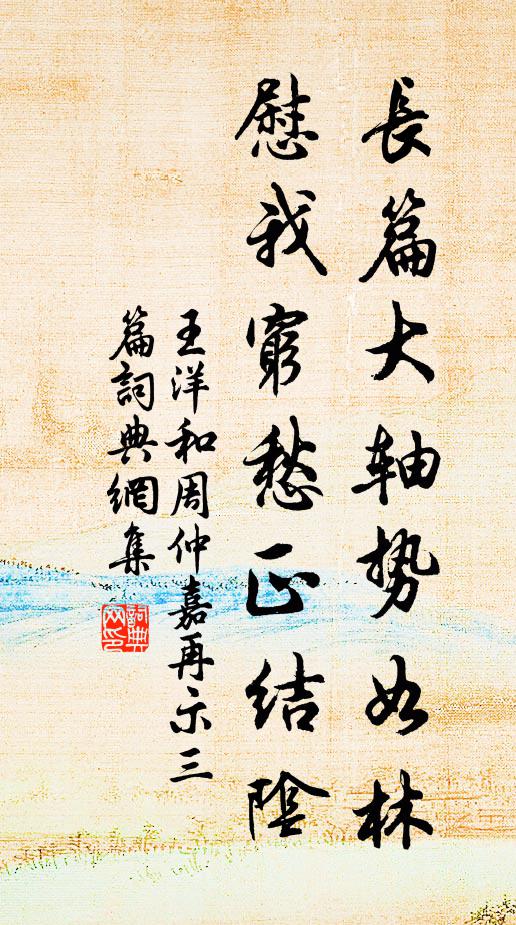 長篇大軸勢如林
慰我窮愁正結陰
王洋和周仲嘉再示三
篇詞典網集
詞典網印